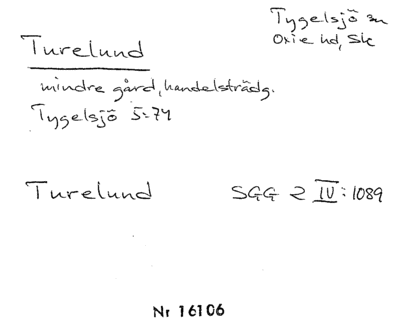 Tygelsjö sn
Oxie hd, Sk
Turelund
mindre gård, handelsträdg.
Tygelsjö 5:74
Turelund SGG 2 IV: 1089
Nr 16106